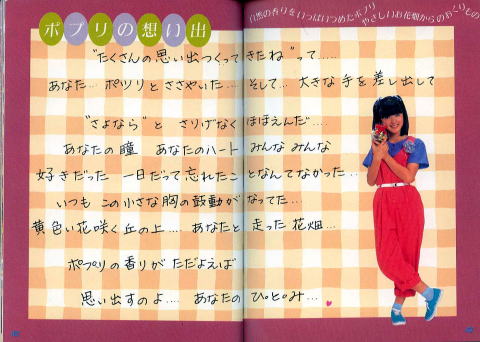 ポプリの想い出
自然の香りをいっぱいつめたポプリ
やさしいお花畑からのおくりもの
"たくさんの思い出つくってきたね"って.....
あなた... ポツリとささやいた.... そして... 大きな手を差し出して
"さよなら"と さりげなくほほえんだ....
あなたの瞳 あなたのハート みんな みんな
好きだった 一日だって忘れたことなんてなかった...
いつも この小さな胸の鼓動がなってた...
黄色い花咲く丘の上.... あなたと走った花畑...
ポプリの香りが ただよえば
思い出すのよ.... あなたの ひ・と・み...